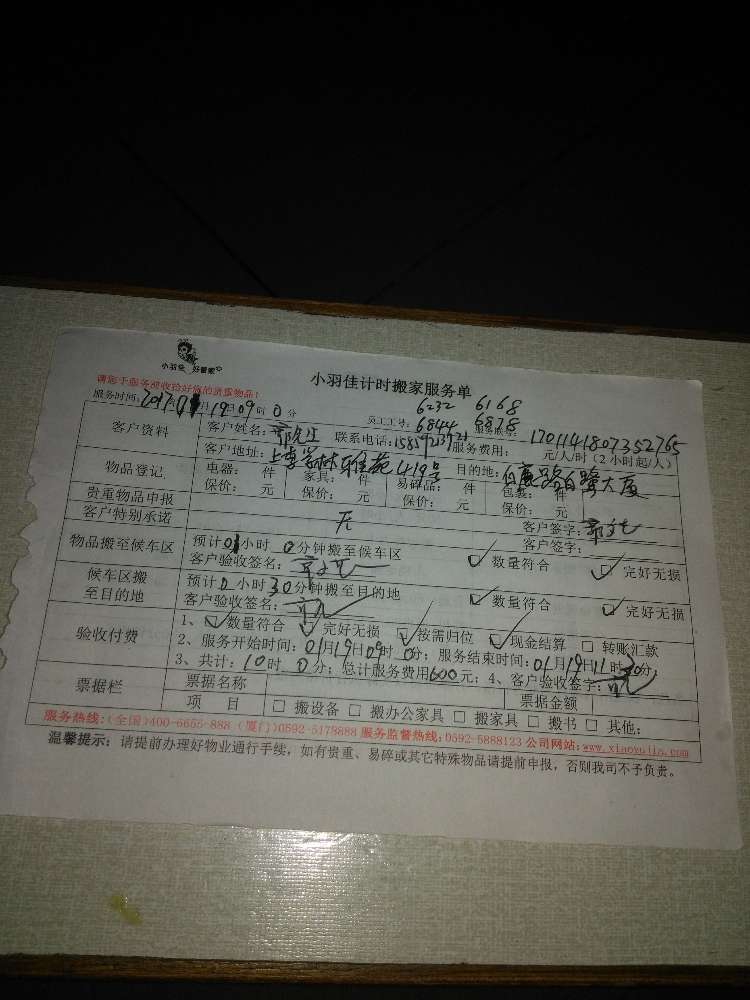 小羽佳 好管家
小羽佳计时搬家服务单
请您于服务前收拾好您的贵重物品!
6232 6168
服务时间: 2017 01月19日09时0分 员工工号: 6844 6878 服务联系: 1701141807352765
客户资料 客户姓名: 郭先生 联系电话: 服务费用: 元/人/时(2小时起/人)
客户地址: 上李学林雅苑419号 目的地: 白鹭大厦
物品登记 电器: 件 家具: 件 易碎品: 件 包装: 件
保价: 元 保价: 元 保价: 元 保价: 元
贵重物品申报 无 客户签字:
客户特别承诺 客户签字:
物品搬至候车区 预计01小时0分钟搬至候车区 ☑ 数量符合 ☑ 完好无损
客户验收签名:
候车区搬至目的地 预计0小时30分钟搬至目的地 ☑ 数量符合 ☑ 完好无损
客户验收签名:
验收付费 1、☑ 数量符合 ☑ 完好无损 ☑ 按需归位 ☑ 现金结算 □ 转账汇款
2、服务开始时间: 01月19日09时0分; 服务结束时间: 01月19日11时30分;
3、共计: 10时0分; 总计服务费用600元; 4、客户验收签字:
票据栏 票据名称 票据金额
项目 □ 搬设备 □ 搬办公家具 □ 搬家具 □ 搬书 □ 其他:
服务热线:(全国)400-6655-888 (厦门)0592-5178888 服务监督热线:0592-5888123 公司网站:www.xiaoyujia.com
温馨提示: 请提前办理好物业通行手续, 如有贵重、易碎或其它特殊物品请提前申报, 否则我司不予负责。